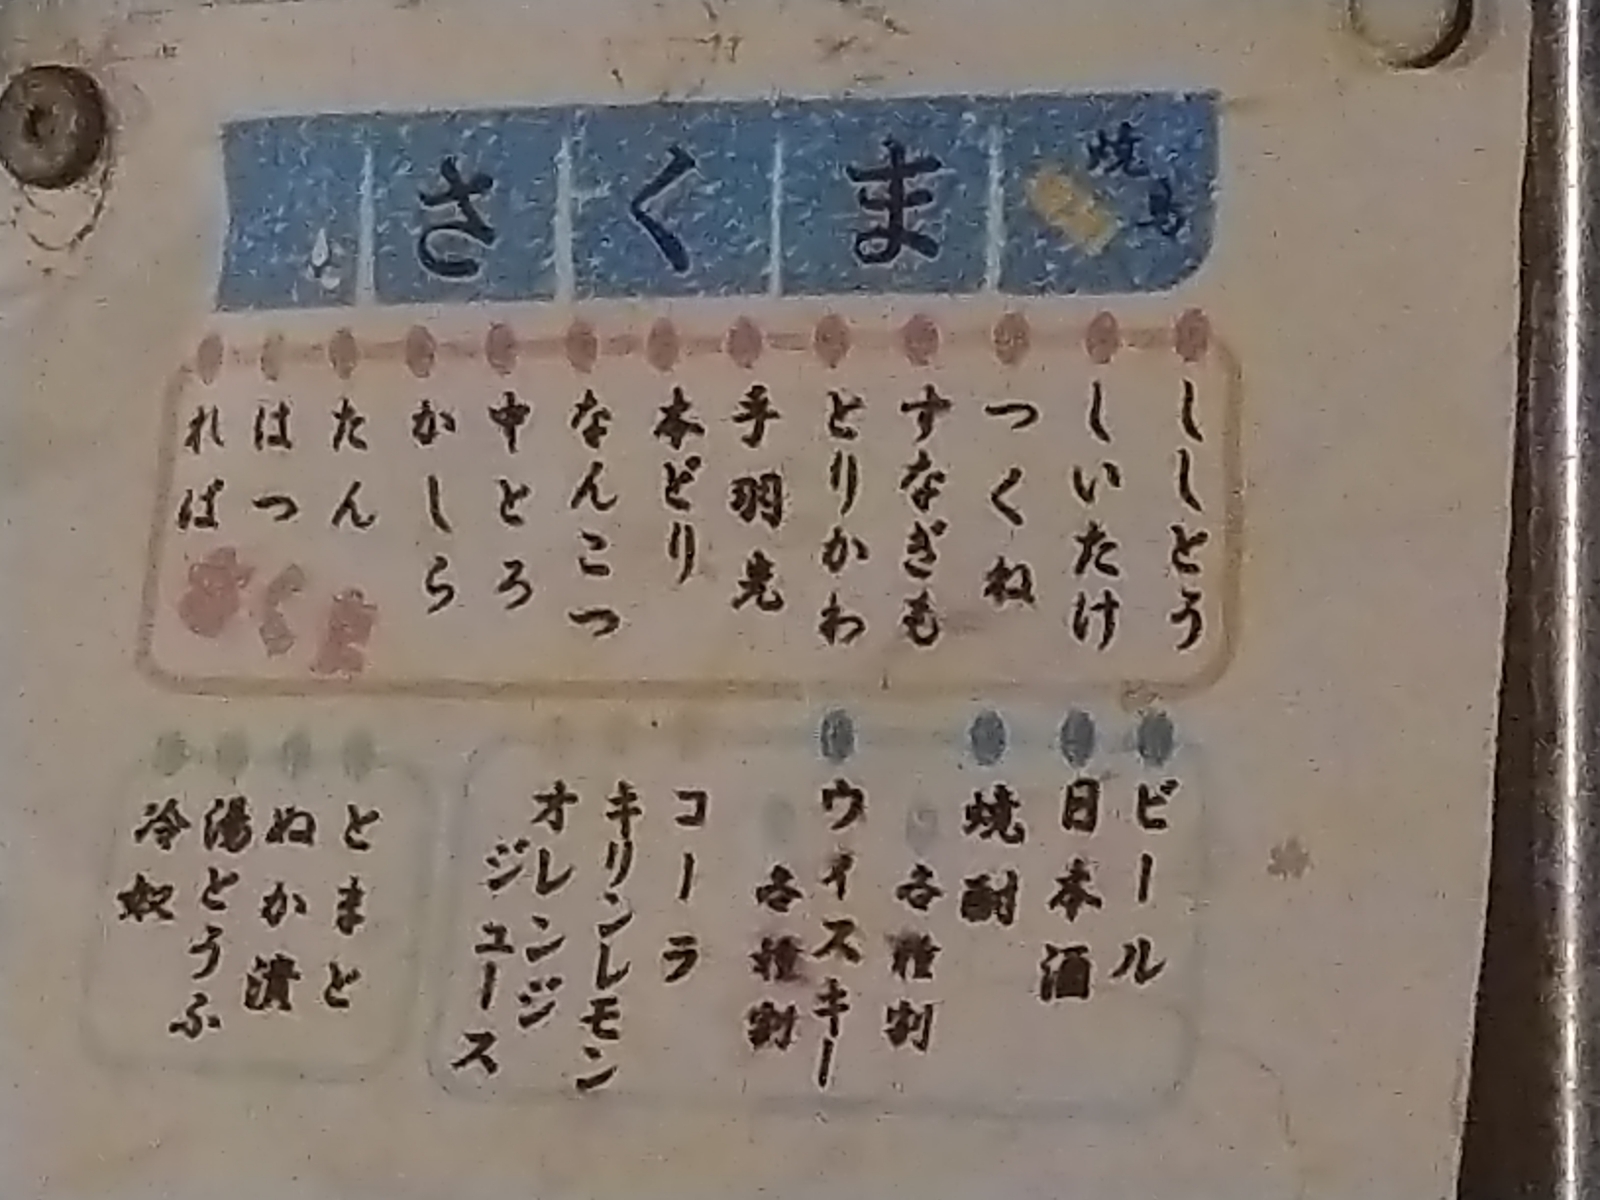 焼鳥
さくま
ししとう
しいたけ
つくね
すなぎも
とりかわ
手羽先
本どり
なんこつ
中とろ
かしら
たん
はつ
れば
さくま
ビール
日本酒
焼酎
各種割
ウィスキー
各種割
コーラ
キリンレモン
オレンジ
ジュース
とまと
ぬか漬
湯とうふ
冷奴